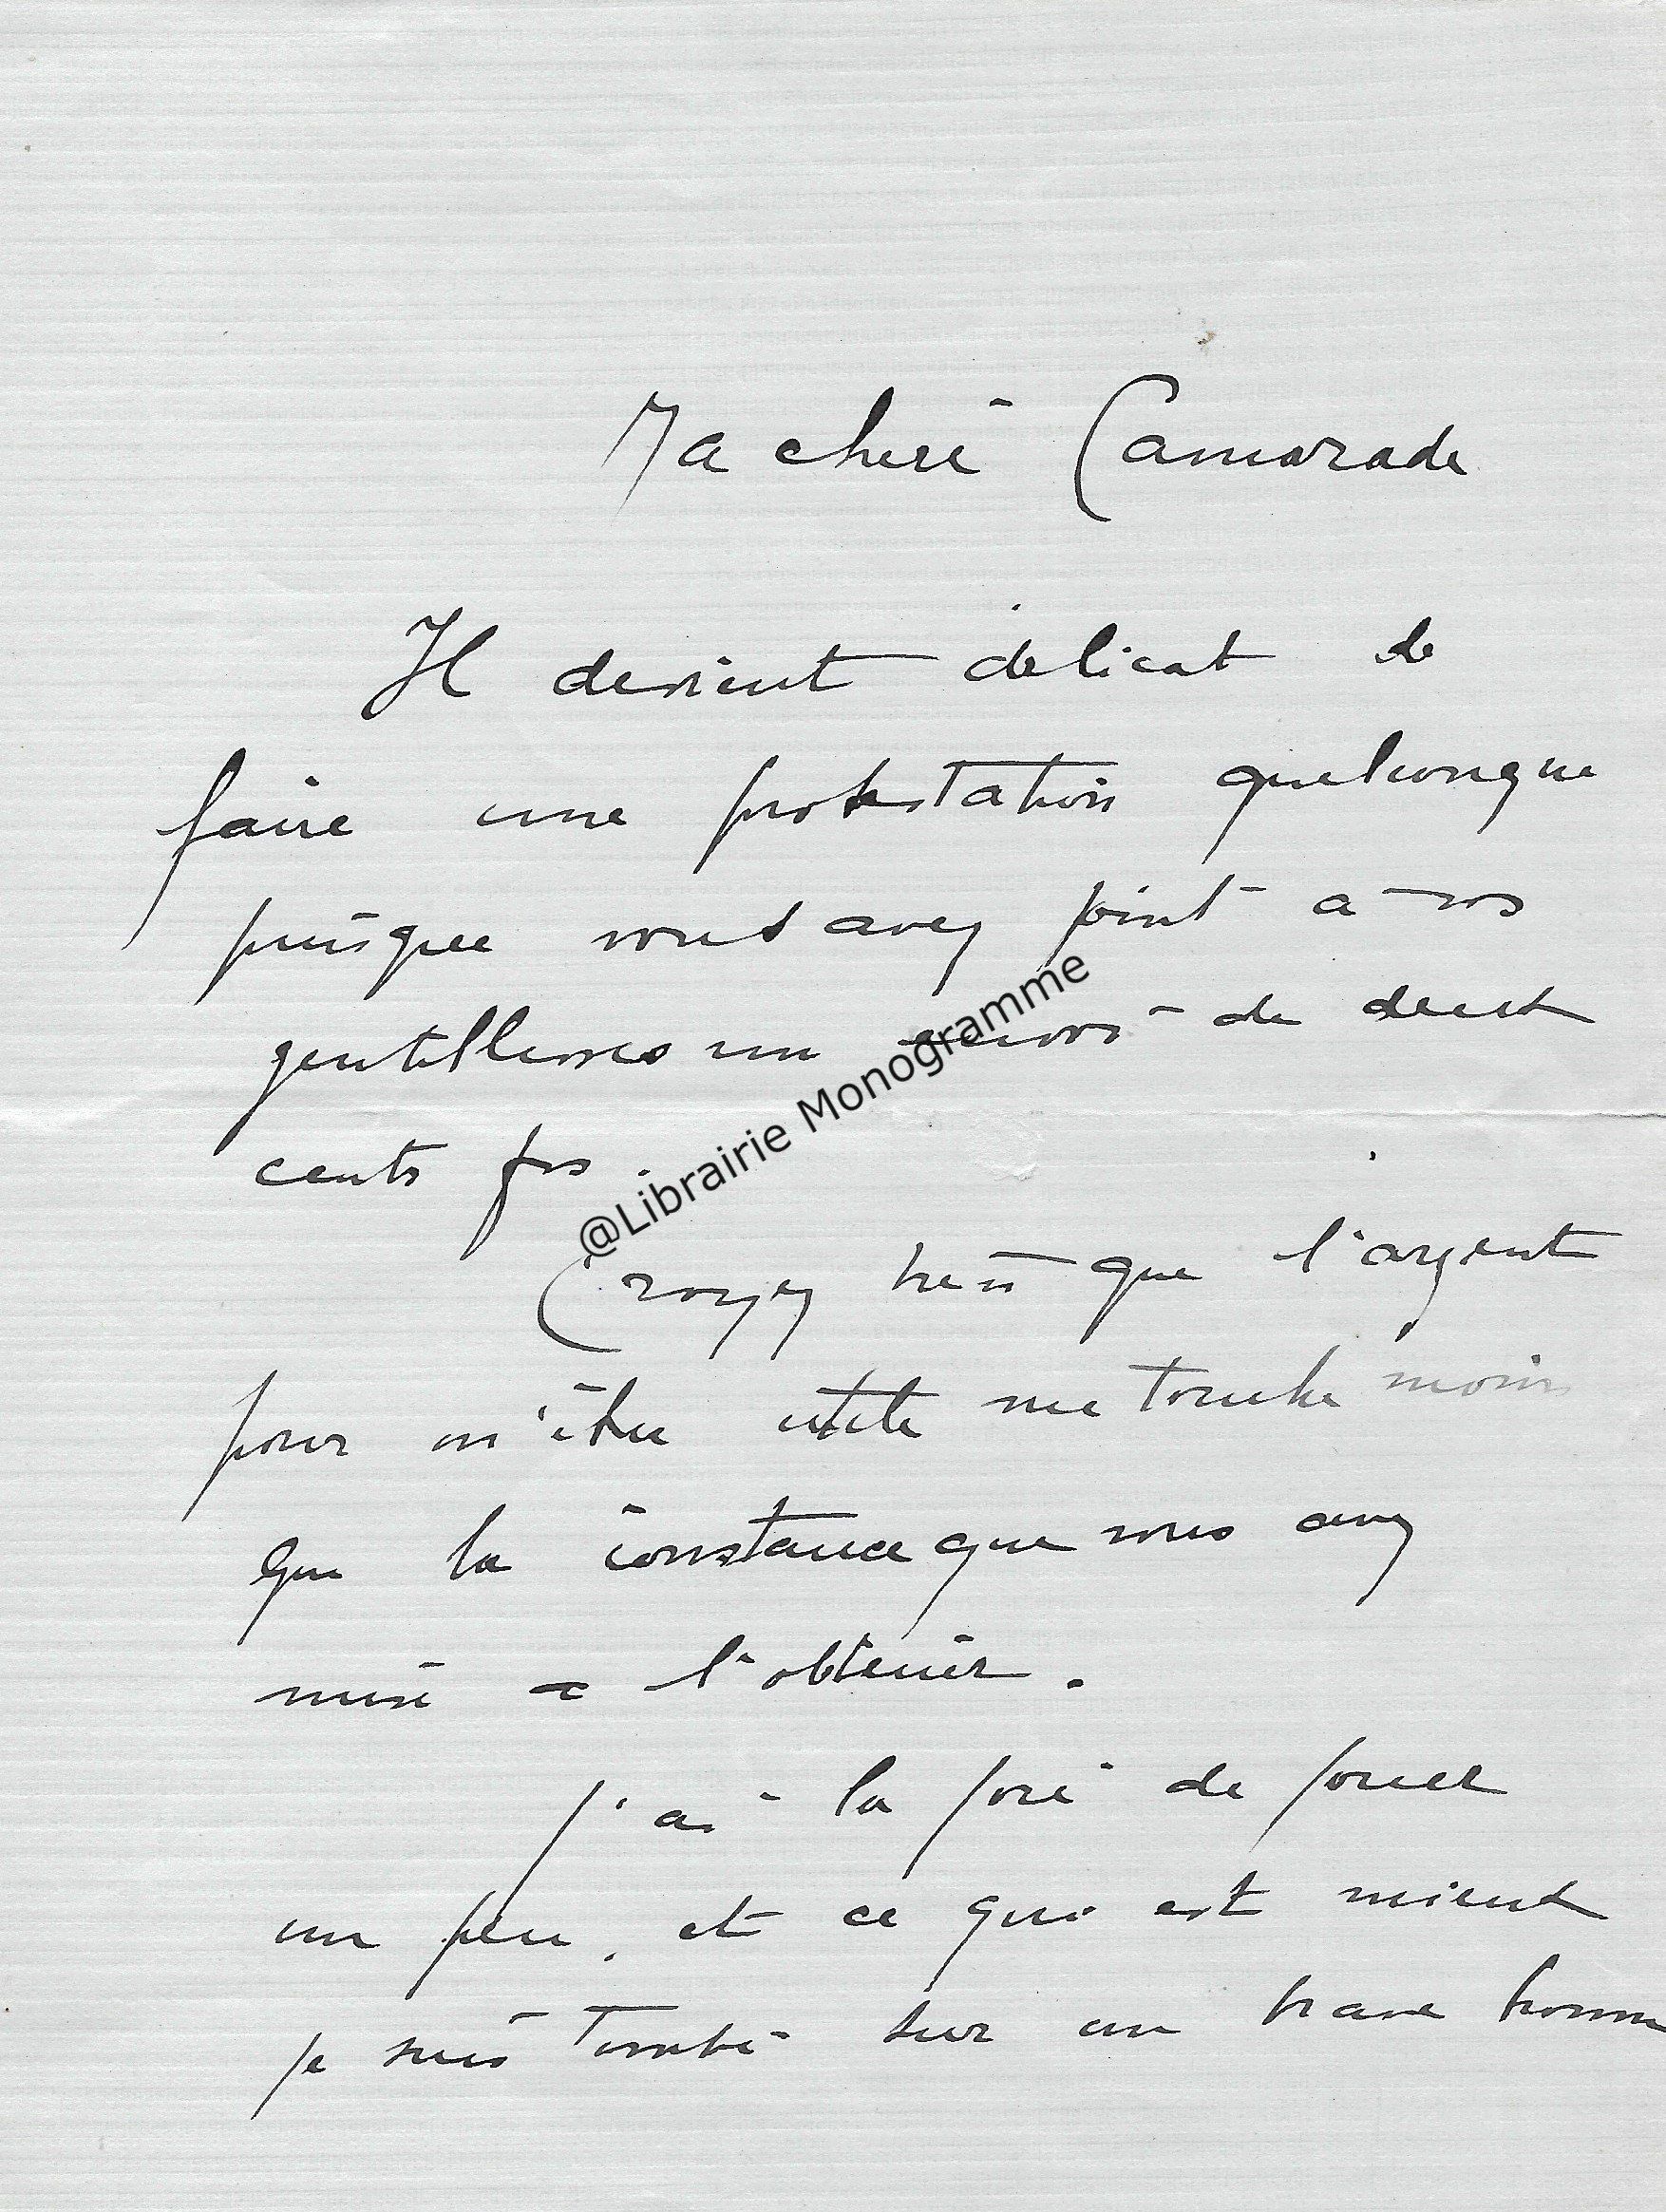 Ma chère Camarade
Il devient délicat de
faire une protestation quelconque
puisque vous avez joint à vos
gentillesses un envoi de deux
cents frs.
@Librairie Monogramme
Croyez bien que l'argent
pour m'être utile me touche moins
que la constance que vous avez
mise à l'obtenir.
J'ai la joie de jouer
un peu, et ce qui est mieux
je suis tombé sur un brave homme